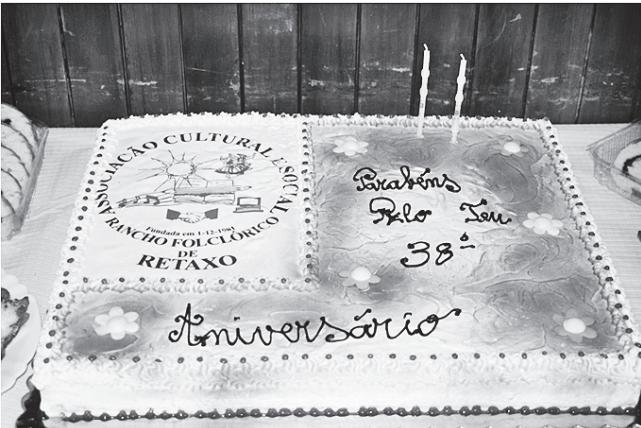 ASSOCIAÇÃO CULTURAL E SOCIAL O
Fundada em 1-12-1961
RANCHO FOLCLÓRICO
DE
RETAXO
Parabéns
Pelo Teu
38º
Aniversário